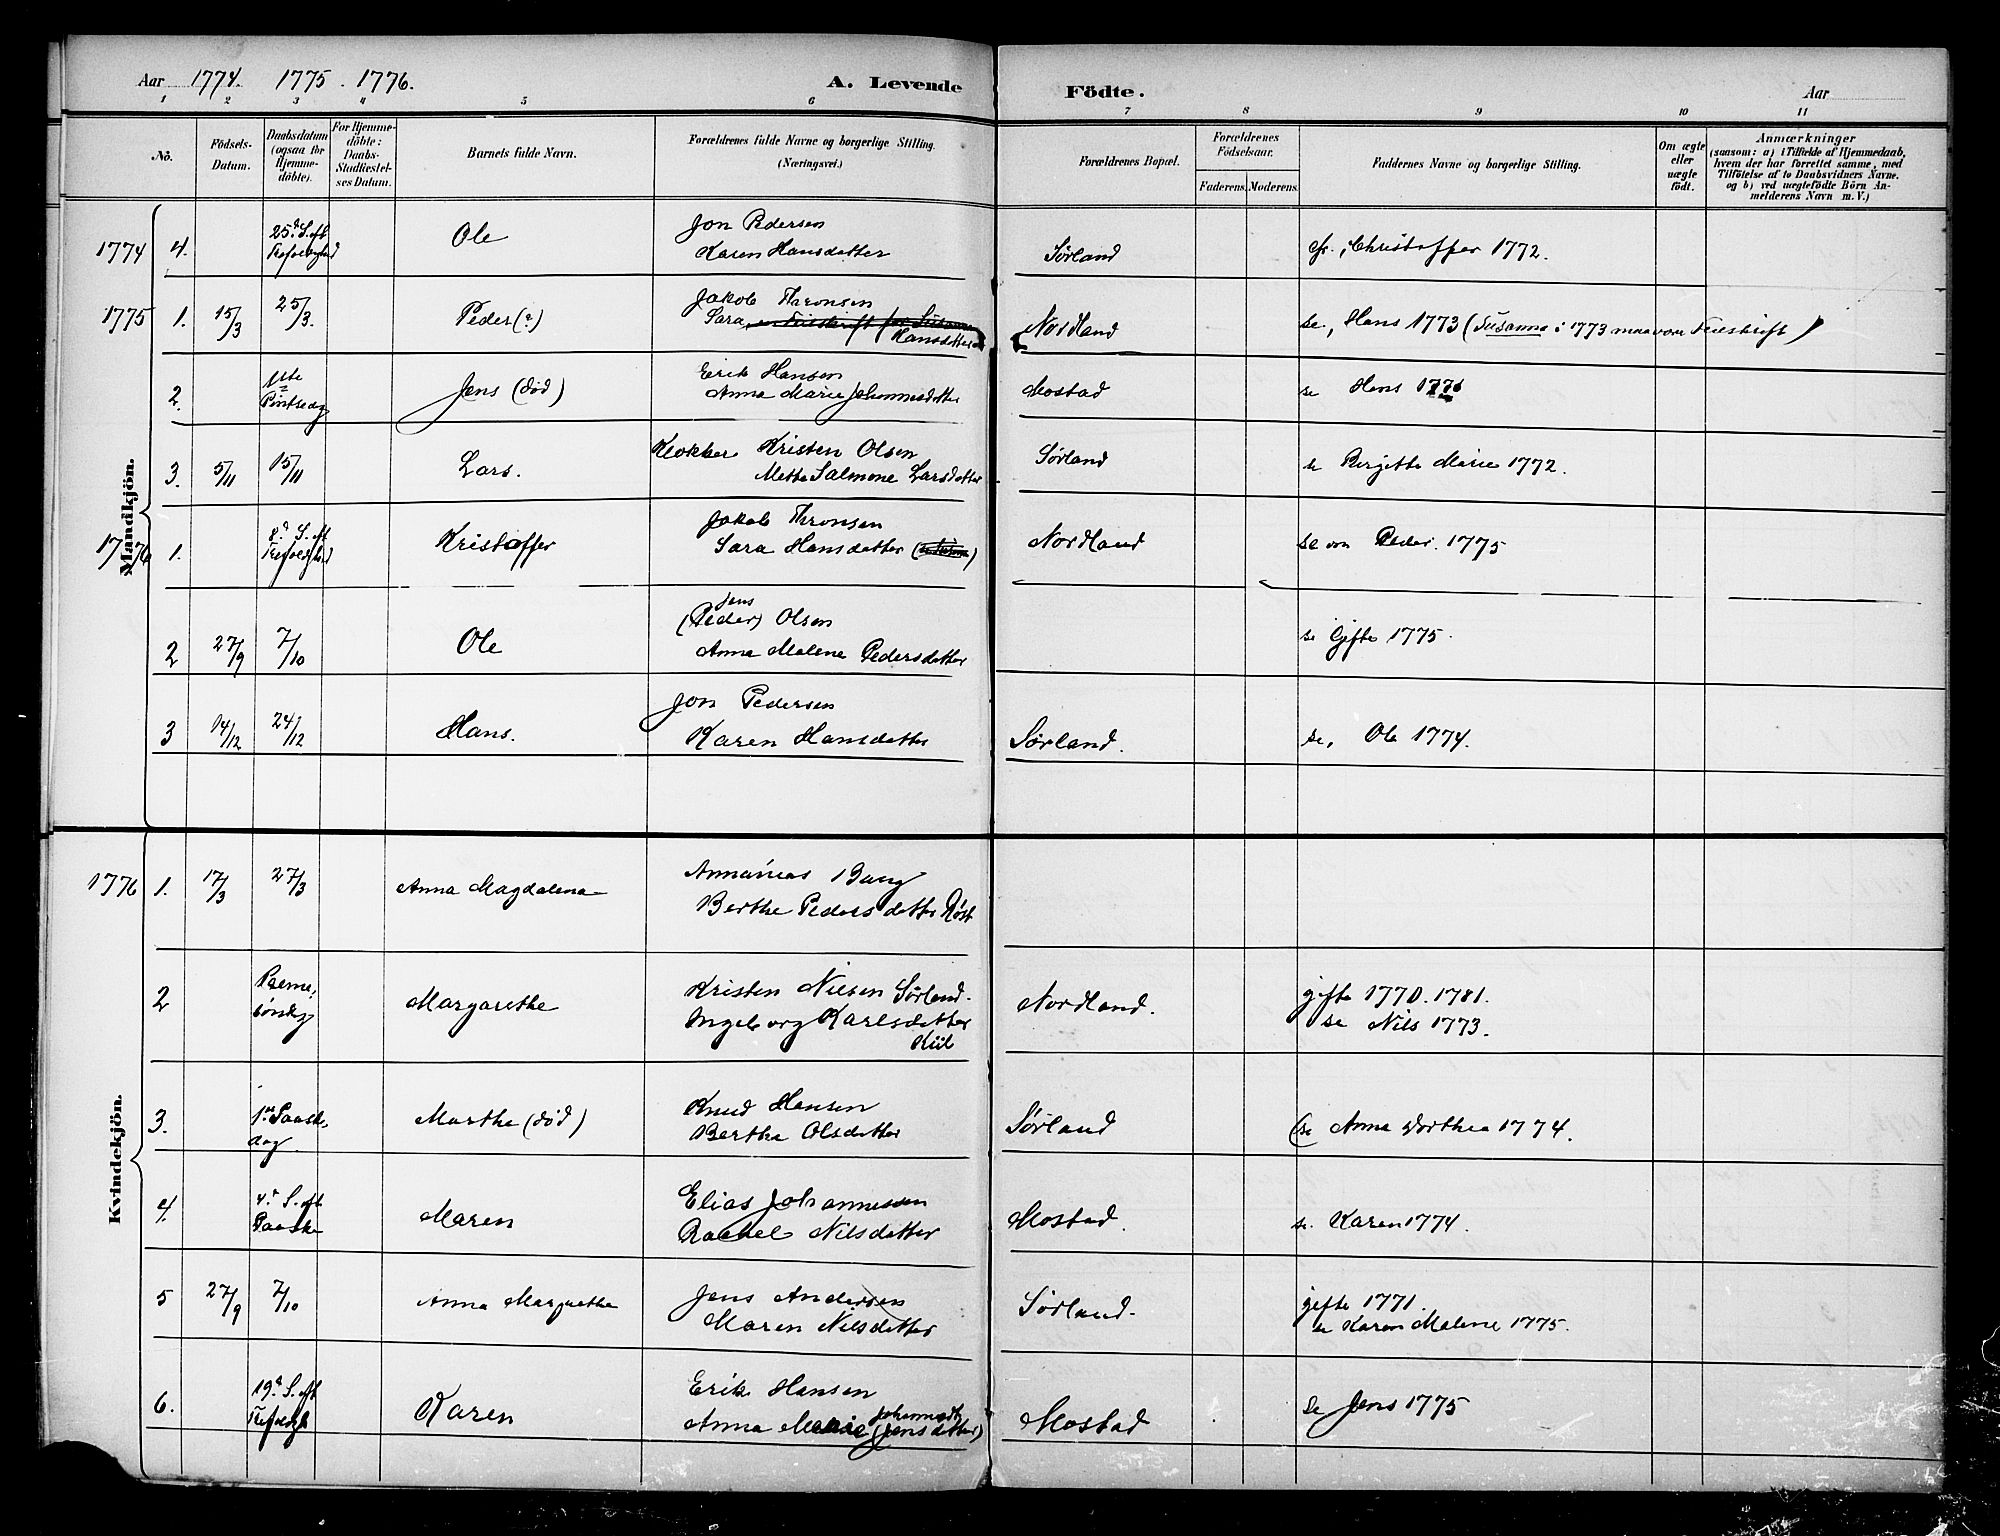 Aar 1774. 1775. 1776. A. Levende Födte. Aar
1 2 3 4 5 6 7 8 9 10 11
No. Födsels-Datum. Daabsdatum (ogsaa for Hjemme-döbte). For Hjemme-döbte: Daabs-Stadfæstel-ses Datum. Barnets fulde Navn. Forældrenes fulde Navne og borgerlige Stilling. (Næringsvei.) Forældrenes Bopæl. Forældrenes Födselsaar. Faderens. Moderens. Faddernes Navne og borgerlige Stilling. Om ægte eller uægte födt. Anmærkninger (saasom: a) i Tilfælde af Hjemmedaab, hvem der har forrettet samme, med Tilföielse af to Daabsvidners Navne. og b) ved uægtefödte Börn An-melderens Navn m. V.)
Mandkjön.
1774 4. 25d S. eft Trefoldighed Ole Jon Pedersen
Karen Hansdatter Sørland cfr. Christoffer 1772.
1775 1. 15/3 25/3. Peder (?) Jakob Thronsen
Sara, en Feilskrift for Susanna
Hansdatter Nordland se, Hans 1773 (Susanna i 1773 maa være Feilskrift)
2. 1ste Pintsedag Jens (død) Erik Hansen
Anna Marie Johannesdatter Mostad se Hans
3. 5/11 15/11 Lars. Klokker Kristen Olsen
Mette Salmone Larsdatter Sørland se Birgitte Marie 1772.
1776 1. 8d S. eft Trefoldighed Kristoffer Jakob Thronsen
Sara Hansdatter Nordland se om Peder. 1775
2 27/9 7/10 Ole Jens
(Peder) Olsen
Anna Malene Pedersdatter se Gifte 1775.
3 14/12 24/12 Hans. Jon Pedersen
Karen Hansdatter Sørland. se, Ole 1774.
Kvindekjön.
1776 1. 17/3 27/3 Anna Magdalena Annanias Bang
Berthe Pedersdatter Røst
2 Palme-søndag Margarethe Kristen Nilsen Sørland.
Ingeborg Karlsdatter
Kiil Nordland. gifte 1770. 1781.
se Nils 1773.
3. 1ste Paaske-dag Marthe (død) Knud Hansen
Berthe Olsdatter Sørland (se Anna Dorthea 1774.
4. 4d S. eft Paaske Maren Elias Johannessen
Rachel Nilsdatter Mostad. se. Karen 1774.
5 27/9 7/10 Anna Margrethe Jens Andersen
Maren Nilsdatter Sørland. gifte 1771.
se Karen Malene 1775.
6. 19d S. eft Trefoldigh Karen Erik Hansen
Anna Marie Johannesdt
(Jensdatter) Mostad se Jens 1775